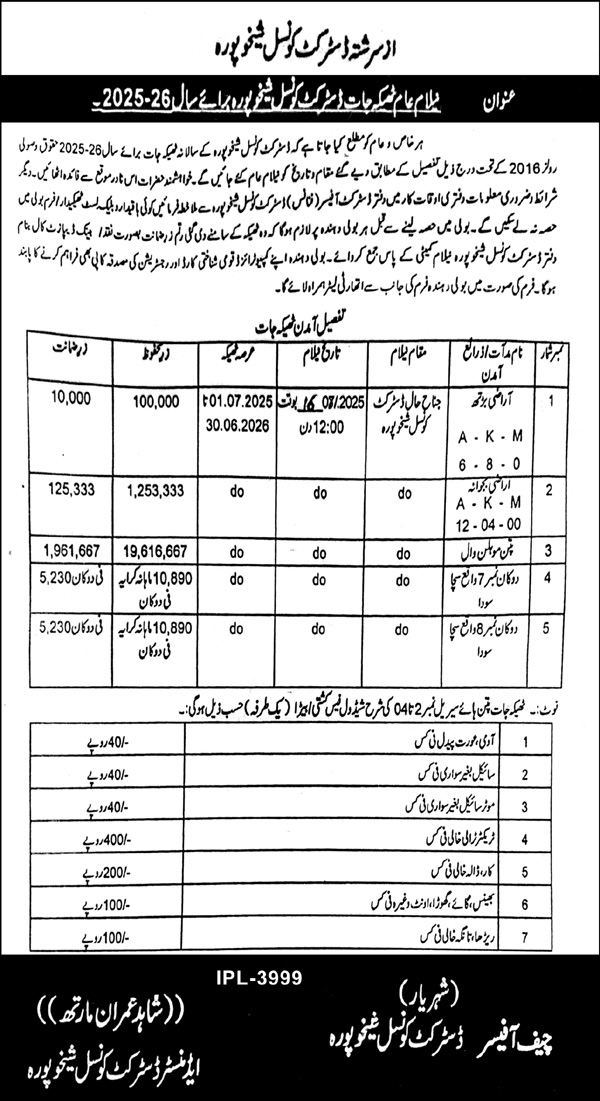 از سرشتہ ڈسٹرکٹ کونسل شیخوپورہ
عنوان نیلام عام ٹھیکہ جات ڈسٹرکٹ کونسل شیخوپورہ برائے سال 26-2025۔
ہر خاص و عام کو مطلع کیا جاتا ہے کہ ڈسٹرکٹ کونسل شیخوپورہ کے سالانہ ٹھیکہ جات برائے سال 26-2025 حقوق وصولی
رولز 2016 کے تحت درج ذیل تفصیل کے مطابق دیے گئے مقام و تاریخ کو نیلام عام کئے جائیں گے۔ خواہشمند حضرات اس نادر موقع سے فائدہ اٹھائیں۔ دیگر
شرائط و ضروری معلومات دفتری اوقات کار میں دفتر ڈسٹرکٹ آفیسر (فنانس) ڈسٹرکٹ کونسل شیخوپورہ سے ملاحظہ فرمائیں کوئی باقیدار و بلیک لسٹ ٹھیکیدار/فرم بولی میں
حصہ نہ لے سکیں گے۔ بولی میں حصہ لینے سے قبل ہر بولی دہندہ پر لازم ہوگا کہ وہ ٹھیکہ کے سامنے دی گئی رقم زر ضمانت بصورت نقد / بینک ڈیپازٹ کال بنام
دفتر ڈسٹرکٹ کونسل شیخوپورہ نیلام کمیٹی کے پاس جمع کروائے۔ بولی دہندہ اپنے کمپیوٹرائزڈ قومی شناختی کارڈ اور رجسٹریشن کی مصدقہ کاپی بھی فراہم کرنے کا پابند
ہوگا۔ فرم کی صورت میں بولی دہندہ فرم کی جانب سے اتھارٹی لیٹر ہمراہ لائے گا۔
تفصیل آمدن ٹھیکہ جات
نمبر شمار نام مدآت/ذرائع آمدن مقام نیلام تاریخ نیلام عرصہ ٹھیکہ زر محفوظ زر ضمانت
1 آراضی بڑتھ A - K - M 6 - 8 - 0 جناح حال ڈسٹرکٹ کونسل شیخوپورہ 16/07/2025 بوقت 12:00 دن 01.07.2025 تا 30.06.2026 100,000 10,000
2 اراضی A - K - M 12-04-00 do do do 1,253,333 125,333
3 پتن موہلن وال do do do 19,616,667 1,961,667
4 دوکان نمبر 7 واقع سچا سودا do do do 10,890 ماہانہ کرایہ فی دوکان 5,230 فی دوکان
5 دوکان نمبر 8 واقع سچا سودا do do do 10,890 ماہانہ کرایہ فی دوکان 5,230 فی دوکان
نوٹ:۔ ٹھیکہ جات پتن ہائے سیریل نمبر 2 تا 04 کی شرح شیڈول فیس کشتی/بیڑا (یک طرفہ) حسب ذیل ہوگی:۔
1 آدمی، عورت پیدل فی کس 40/- روپے
2 سائیکل بغیر سواری فی کس 40/- روپے
3 موٹر سائیکل بغیر سواری فی کس 40/- روپے
4 ٹریکٹر ٹرالی خالی فی کس 400/- روپے
5 کار، ڈالہ خالی فی کس 200/- روپے
6 بھینس، گائے، گھوڑا، اونٹ وغیرہ فی کس 100/- روپے
7 ریڑھا، تانگہ خالی فی کس 100/- روپے
IPL-3999
(شہریار)
چیف آفیسر ڈسٹرکٹ کونسل شیخوپورہ
((شاہد عمران مارتھ))
ایڈمنسٹر ڈسٹرکٹ کونسل شیخوپورہ